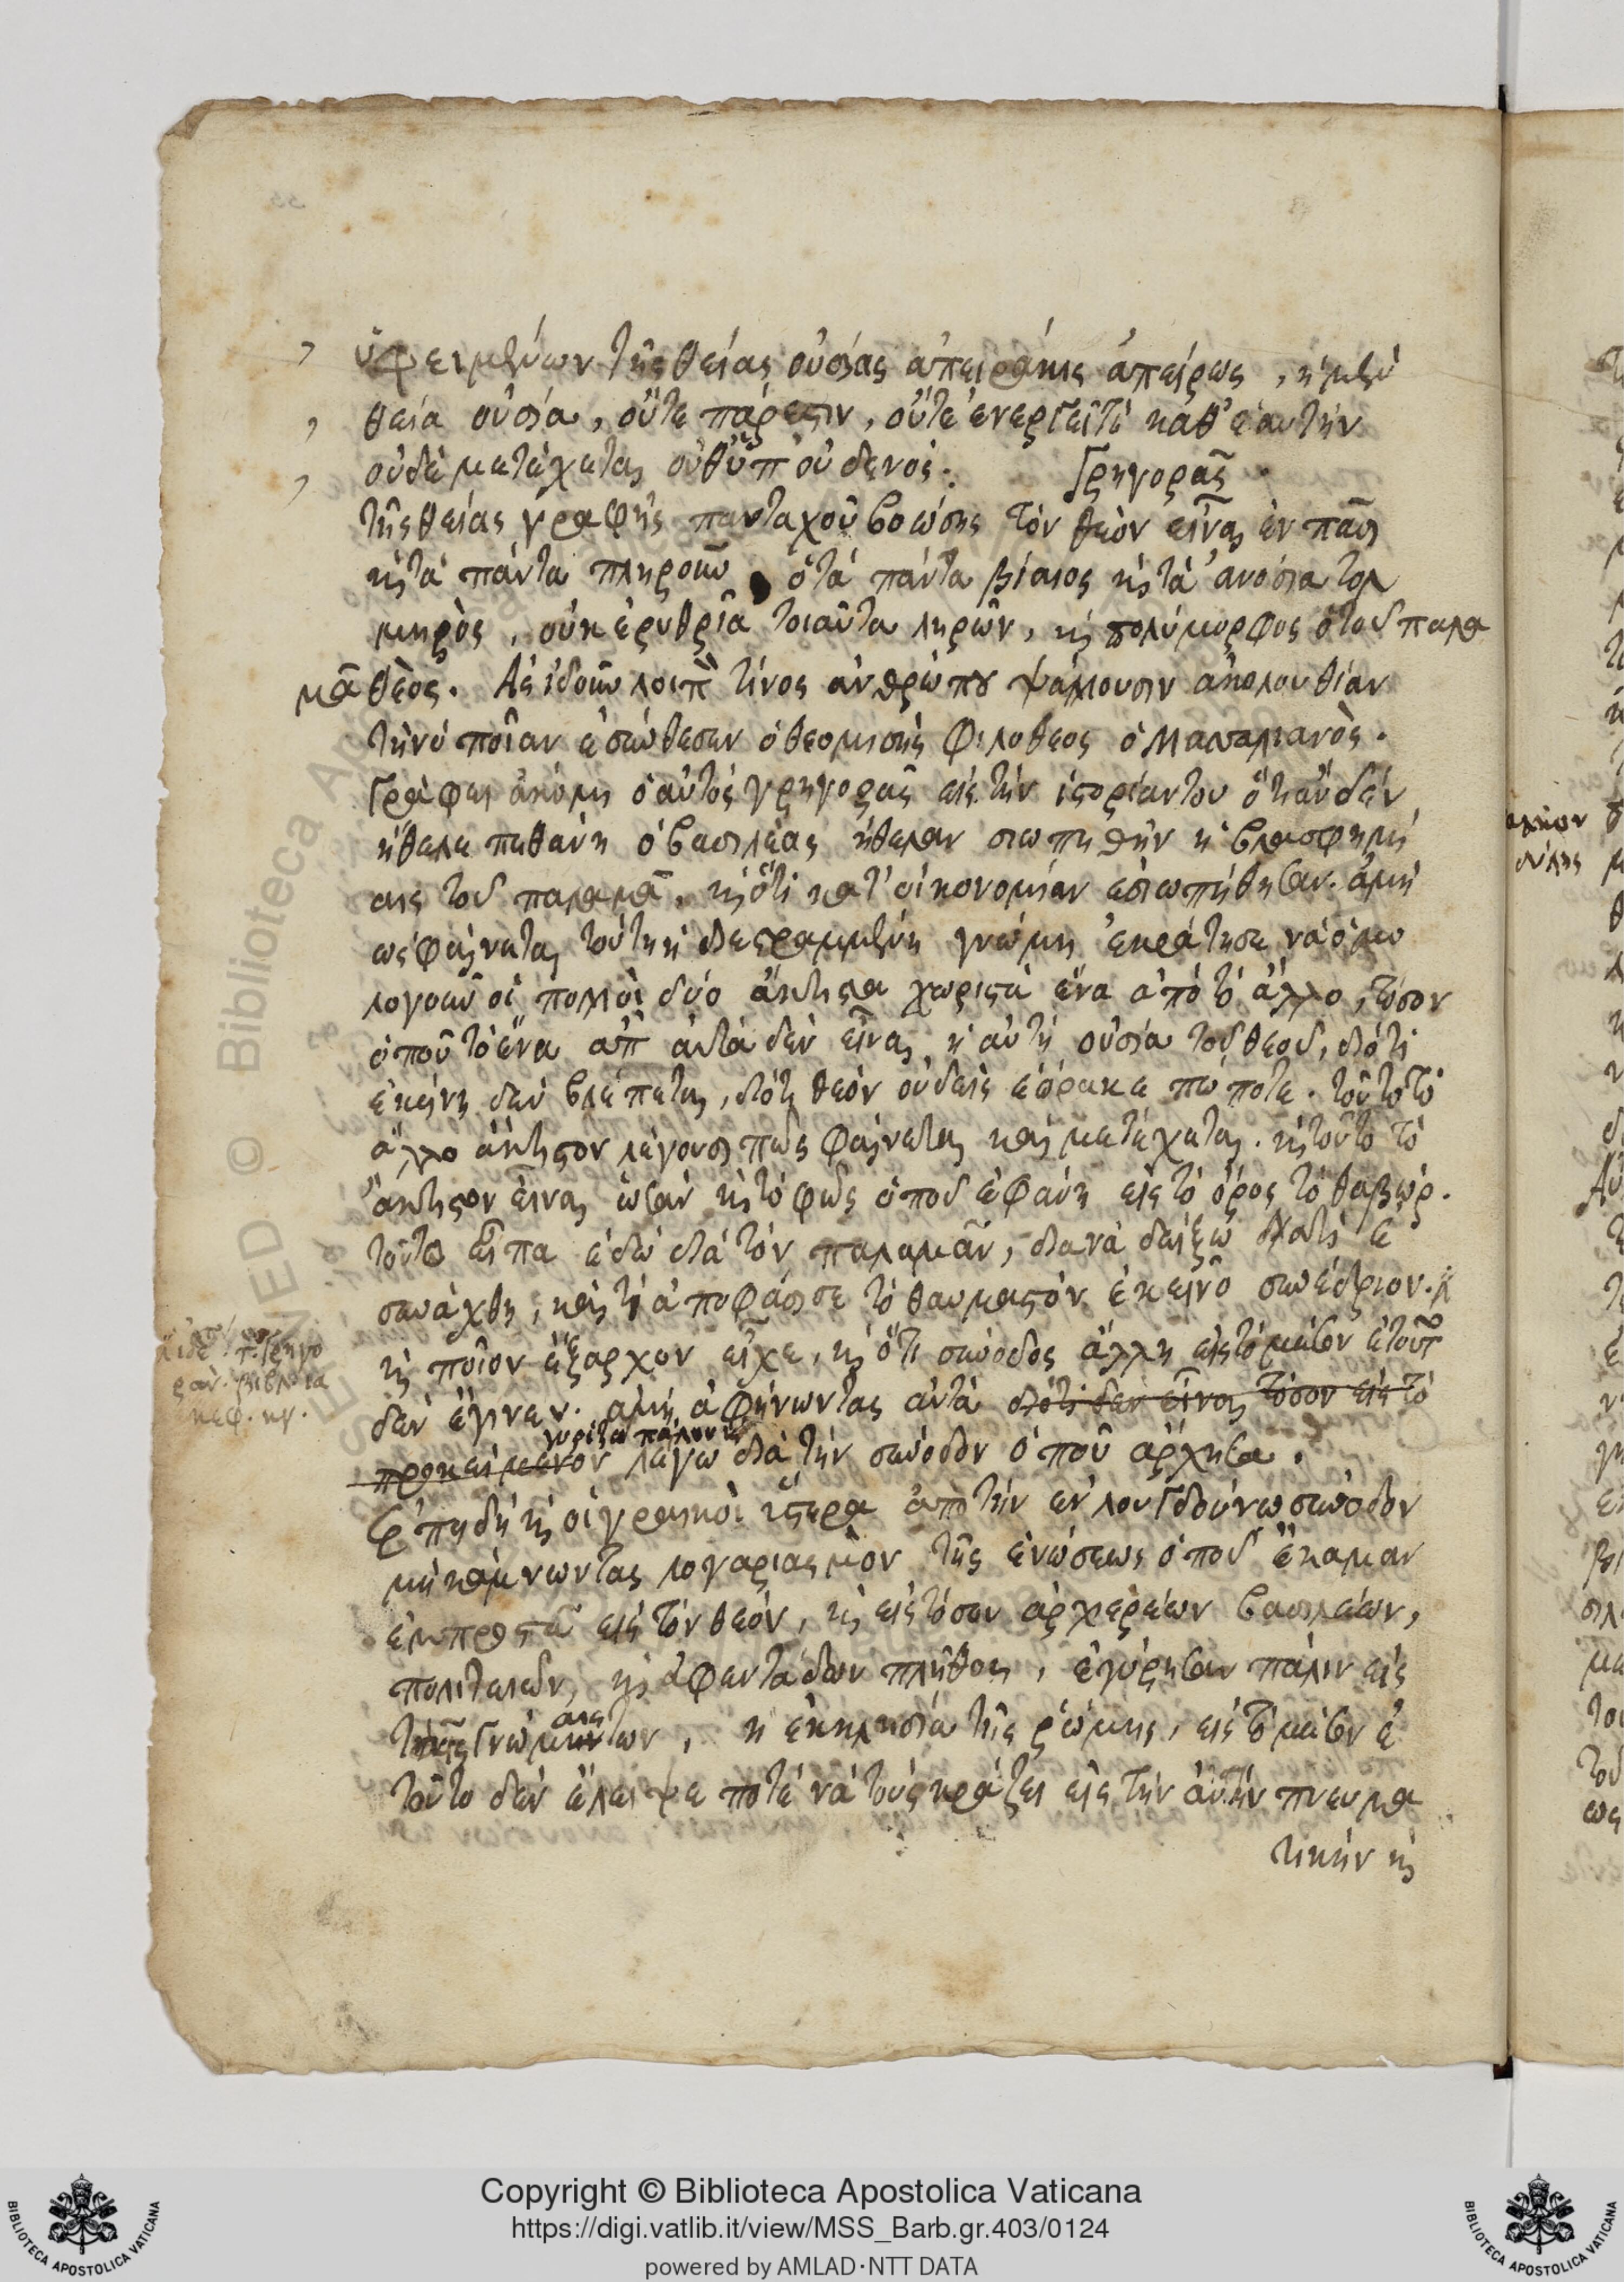 ὑφειμένων τῆς θείας οὐσίας ἀπειράκις ἀπείρως, ἡ μὲν
θεία οὐσία, οὔτε πάρεστιν, οὔτε ἐνεργεῖ τὶ καθ' ἑαυτήν
οὐδὲ μετέχεται οὐθ' ὑπ' οὐδενός. Γρηγορᾶς
τῆς θείας γραφῆς πανταχοῦ βοώσης τὸν θεὸν εἶναι ἐν πᾶσι
κ̀ τὰ πάντα πληροῦν, ὁ τὰ πάντα βίαιος κ̀ τὰ ἀνόσια τολ
μηρὸς, οὐκ ἐρυθριᾶ τοιαῦτα ληρῶν, κ̀ πολύμορφος ὁ τοῦ παλα
μᾶ θεὸς. Ἀς ἰδοῦν λοιπὸν τίνος ἀνθρώπου ψάλλουσιν ἀκολουθίαν
τὴν ὁποῖαν ἐσύνθεσεν ὁ θεομισὴς Φιλόθεος ὁ παλαμιανὸς.
Γράφει ἀκόμη ὁ αὐτὸς γρηγορᾶς εἰς τὴν ἱστορίαν του ὅτι ἂν δὲν
ἤθελε πεθάνη ὁ βασιλέας ἤθελαν σιωπηθῆν ἡ βλασφημί
αις τοῦ παλαμᾶ, κ̀ ὅτι κατ' οἰκονομίαν ἐσιωπήθησαν. ἀμὴ
ὡς φαίνεται τούτη ἡ διεστραμμένη γνώμη ἐκράτησε νὰ ὁμο
λογοῦν οἱ πολλοὶ δύο ἄκτιστα χωριστὰ ἕνα ἀπὸ τὸ ἄλλο, τόσον
ὁποῦ τὸ ἕνα ἀπ' αὐτὰ δὲν εἶναι ἡ αὐτὴ οὐσία τοῦ θεοῦ, διότι
ἐκείνη δὲν βλέπεται, διότι θεὸν οὐδεὶς ἑόρακε πώποτε. τοῦτο τὸ
ἄλλο ἄκτιστον λέγουσι πῶς φαίνεται καὶ μετέχεται. κ̀ τοῦτο τὸ
ἄκτιστον εἶναι ὡσὰν κ̀ τὸ φῶς ὁποῦ ἐφάνη εἰς τὸ ὄρος τὸ θαβώρ.
τοῦτο εἶπα ἐδῶ διὰ τὸν παλαμᾶν, διὰ νὰ δείξω διατὶ ἐ
συνάχθη, καὶ τὶ ἀποφάσισε τὸ θαυμαστὸν ἐκεῖνο συνέδριον.
κ̀ ποῖον ἔξαρχον εἶχε, κ̀ ὅτι σύνοδος ἄλλη εἰς τὸ μέσον ἐτοῦτο
δὲν ἔγινεν. ἀμὴ ἀφήνωντας αὐτὰ διότι δεν εἶναι τόσον εἰς τὸ
γυρίζω πάλιν
προκείμενον λέγω διὰ τὴν σύνοδον ὁποῦ ἄρχησα.
Ἐπηδὴ κ̀ οἱ γραικοὶ ὕστερα ἀπὸ τὴν ἐν λουγδούνω σύνοδον
μὴ κάμνωντας λογαριασμὸν τῆς ἑνώσεως ὁποῦ ἔκαμαν
ἐμπροστὰ εἰς τὸν θεόν, κ̀ εἰς τόσων ἀρχερέων βασιλέων,
πολιτειῶν, κ̀ ἀφεντάδων πλῆθος, ἐγύρησαν πάλιν εἰς
αις
ταῖς γνώμην των, ἡ ἐκκλησία τῆς ῥώμης, εἰς τὸ μέσον ἐ
τοῦτο δὲν ἔλειψε ποτὲ νὰ τοὺς κράζει εἰς τὴν αὐτὴν πνευμα
τικὴν κ̀
Γρηγο
ρᾶν. βιβλ. ια
κεφ.
Copyright © Biblioteca Apostolica Vaticana
https://digi.vatlib.it/view/MSS_Barb.gr.403/0124
powered by AMLAD·NTT DATA
BIBLIOTECA APOSTOLICA VATICANA
BIBLIOTECA APOSTOLICA VATICANA